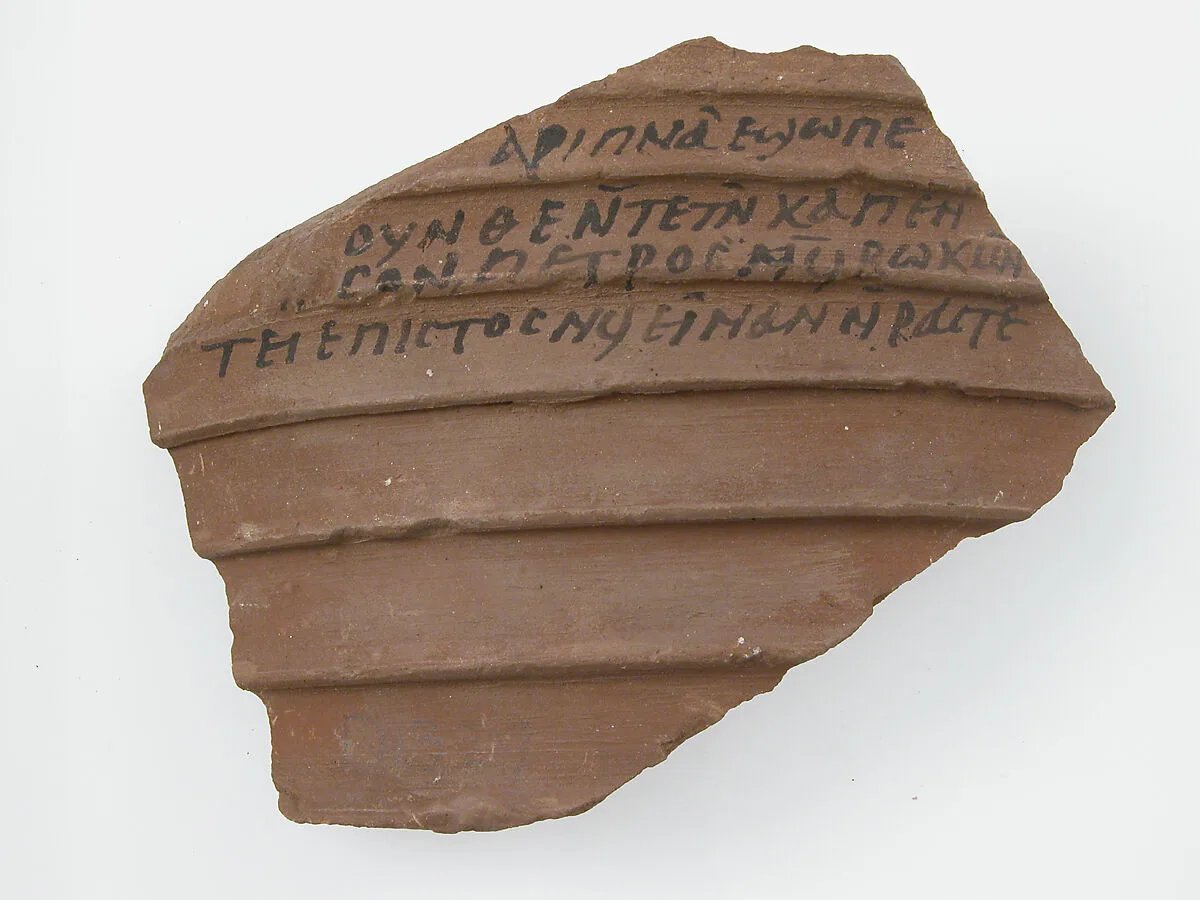 ⲁⲣⲓⲡⲛⲁ ⲉϣⲱⲡⲉ
ⲟⲩⲛ ⲑⲉ ⲛ̄ⲧⲉⲧⲛ̄ⲭⲁ ⲡⲉⲛ
ⲥⲟⲛ ⲡⲉⲧⲣⲟⲥ ⲙϥ̄ⲃⲱⲕ
ⲧⲉⲓⲉⲡⲓⲥⲧⲟⲥ ⲛϥⲉⲓ ⲛⲁⲛ ⲛ̄ⲣⲁⲥⲧⲉ